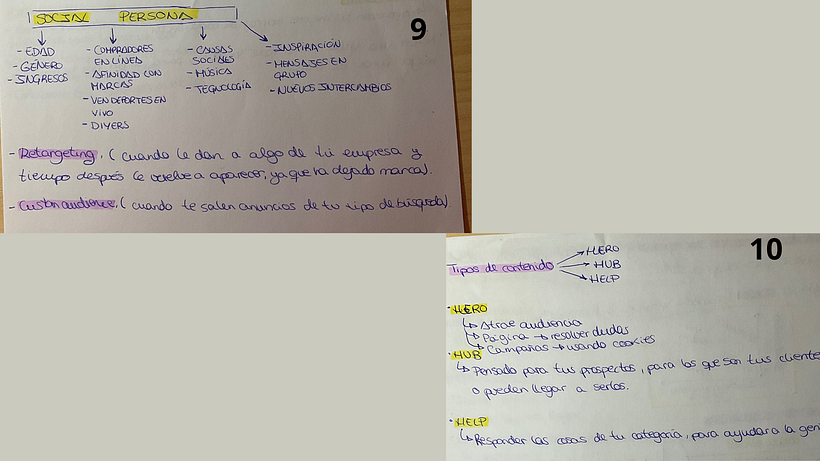 SOCIAL PERSONA
9
- EDAD
- GÉNERO
- INGRESOS
- COMPRADORES
EN LÍNEA
- AFINIDAD CON
MARCAS
- VEN DEPORTES EN
VIVO
- DIYERS
- CAUSAS
SOCIALES
- MÚSICA
- TECNOLOGÍA
- INSPIRACIÓN
- MENSAJES EN
GRUPO
- NUEVOS INTERCAMBIOS
- Retargeting. (cuando le dan a algo de tu empresa y
tiempo después le vuelve a aparecer, ya que ha dejado marca).
- Custon audience. (cuando te salen anuncios de tu tipo de búsqueda)
10
Tipos de contenido
HERO
HUB
HELP
· HERO
Atrae audiencia
Página → resolver dudas
Campañas → usando cookies
· HUB
Pensado para tus prospectos, para los que son tus cliente
o pueden llegar a serlos.
· HELP
Responder las cosas de tu categoría, para ayudar a la gen